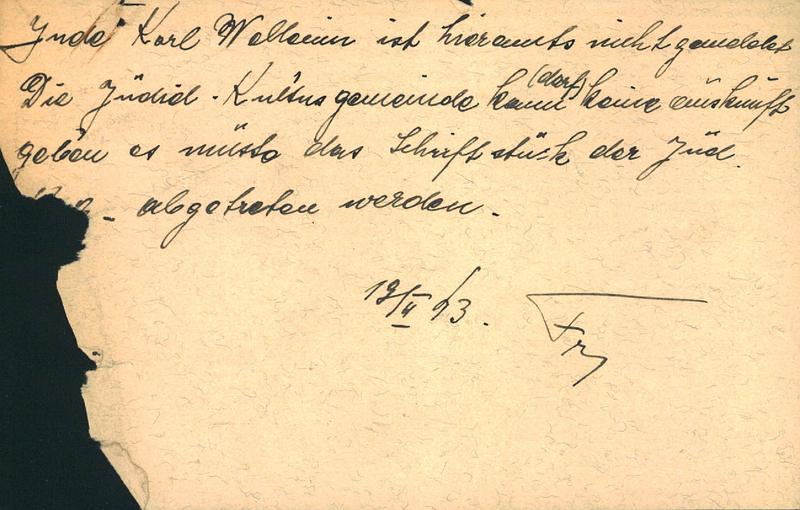 Jude Karl Wallenin ist hieramts nicht gemeldet
Die Jüdid - Kultusgemeinde kann (darf) keine auskunft
geben es müsste das Schriftstück der Jüd.
- abgetreten werden.
19/II 43. Fr